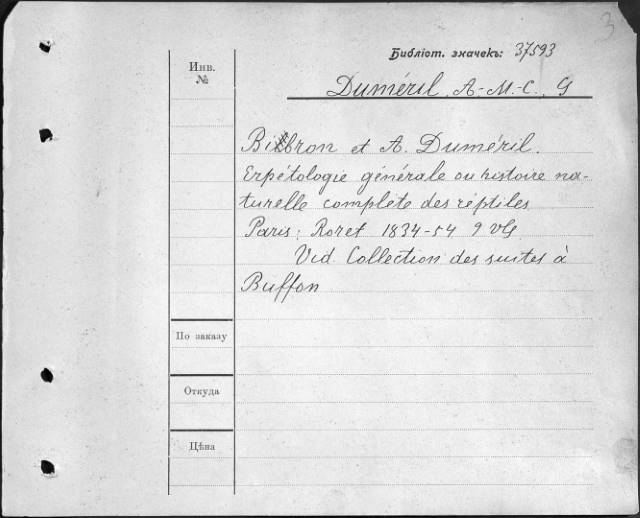 3
Библіот. значекъ: 37593
Инв.
№
Duméril, A.-M.-C., G
Bibron et A. Duméril.
Erpétologie générale ou histoire na-
turelle complète des réptiles
Paris: Roret 1834-54 9 vls
Vid. Collection des suites à
Buffon
По заказу
Откуда
Цѣна